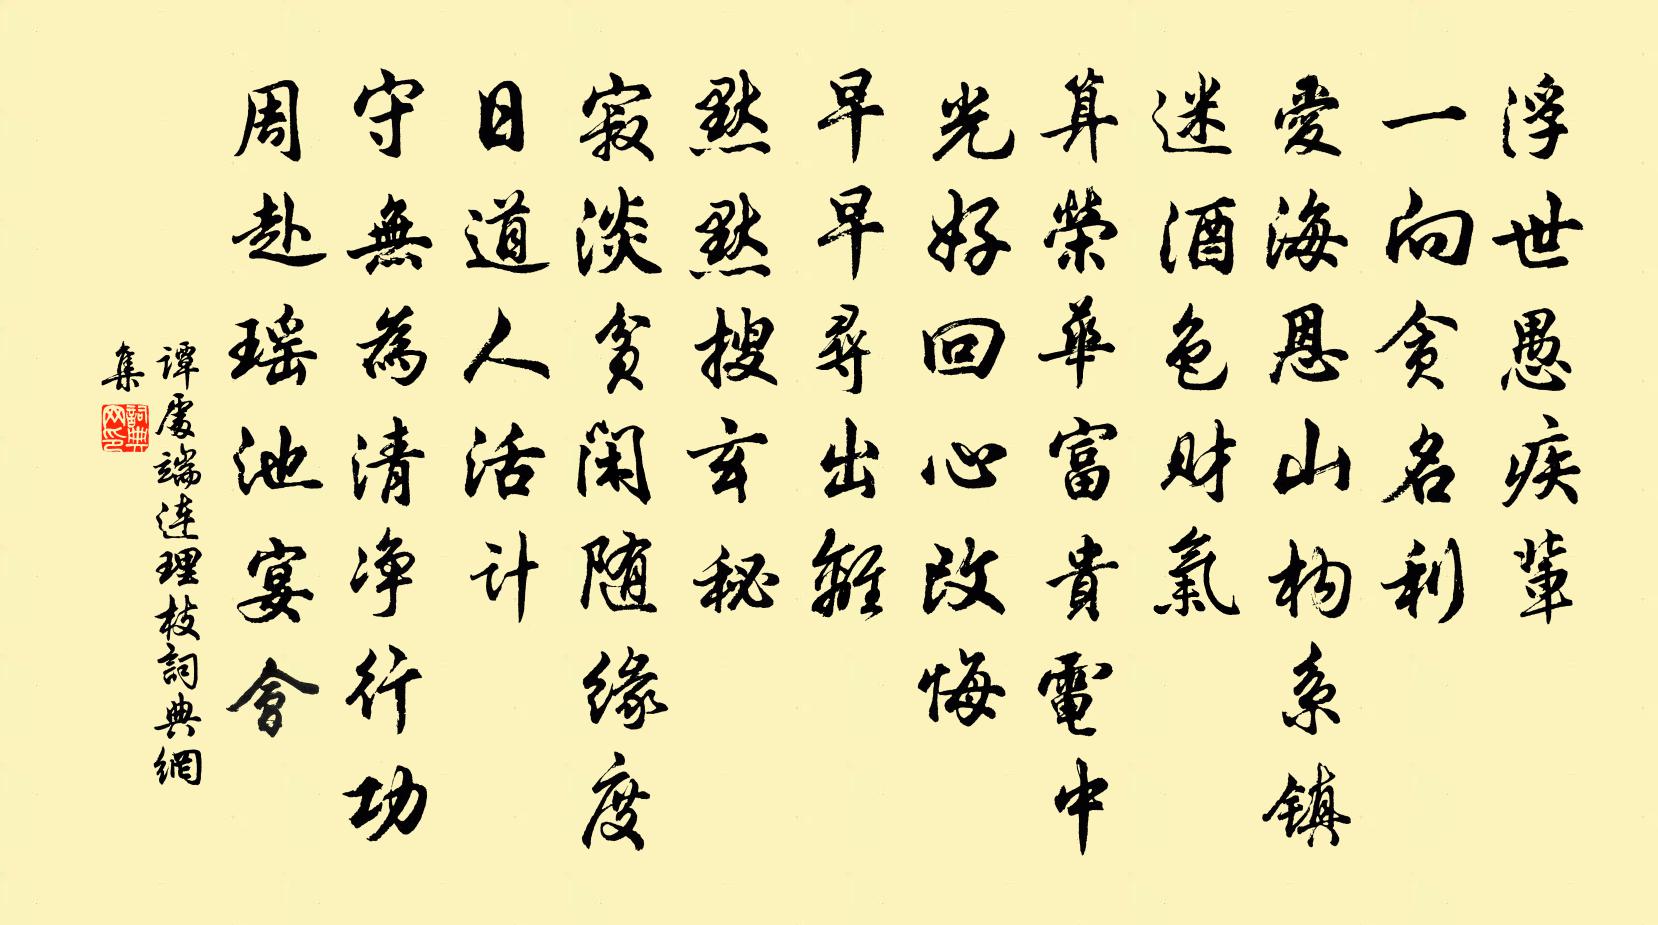 浮世愚疾輩
一向貪名利
愛海恩山构系鎮
迷酒色財氣
算榮華富貴電中
光好回心改悔
早早尋出離
黙黙搜玄秘
寂淡貧閑隨緣度
日道人活计
守無為清净行功
周赴瑶池宴會
譚處端連理枝詞典網
集
詞典网印